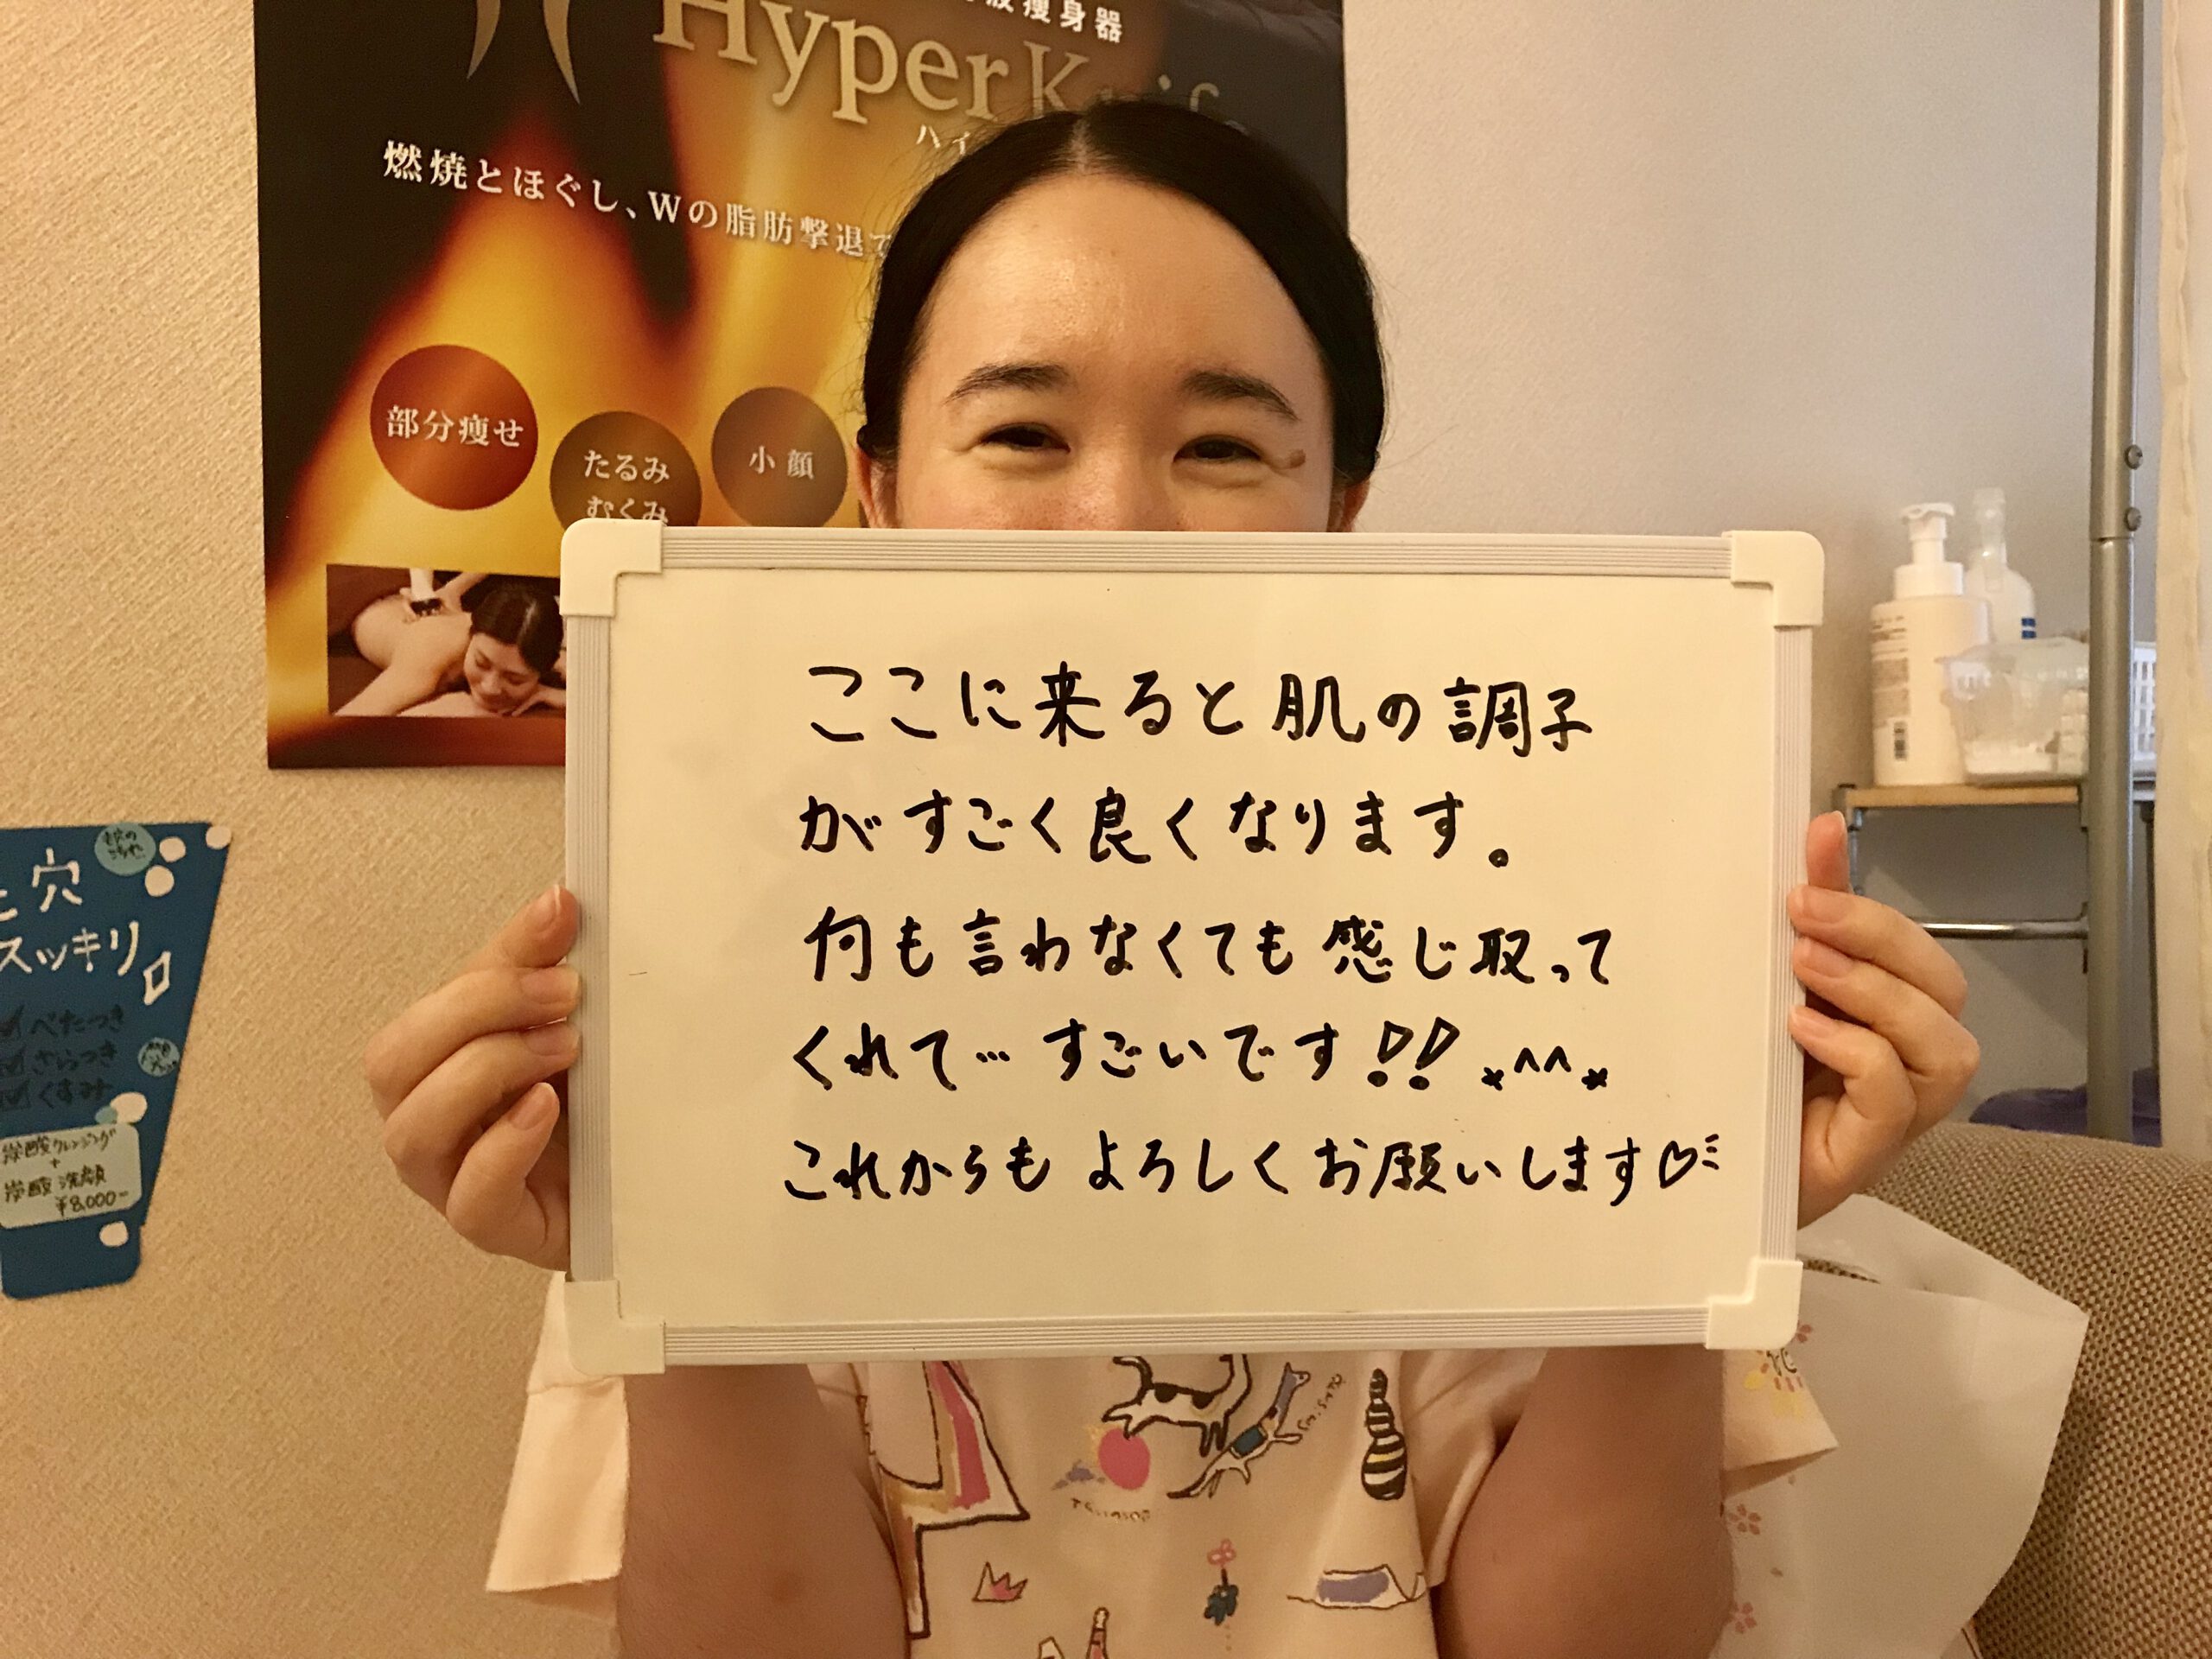 痩身器
Hyper
ハイ
燃焼とほぐし、Wの脂肪撃退で
部分痩せ
たるみ
むくみ
小顔
ここに来ると肌の調子
がすごく良くなります。
何も言わなくても感じ取って
くれて…すごいです!! *^^*
これからもよろしくお願いします♡
穴
スッキリ
☑べたつき
☑ざらつき
☑くすみ
炭酸クレンジング
+
炭酸洗顔
¥8,000-